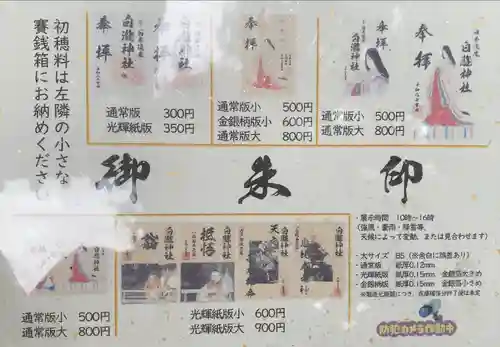 初穂料は左隣の小さな
賽銭箱にお納めください
奉拝
白瀧神社
通常版 300円
光輝紙版 350円
奉拝
通常版小 500円
金銀柄版小 600円
通常版大 800円
奉拝
白瀧神社
通常版小 500円
通常版大 800円
奉拝
白瀧神社
御朱印
通常版小 500円
通常版大 800円
白瀧神社
白瀧神社
光輝紙版小 600円
光輝紙版大 900円
・展示時間 10時~16時
(強風・豪雨・降雪等、
天候によって変動、または見合わせます)
・大サイズ B5
・通常版 紙厚0.12mm
・光輝紙版 紙厚0.15mm 金銀箔大きめ
・金銀柄版 紙厚0.15mm 金銀箔小さめ
防犯カメラ作動中